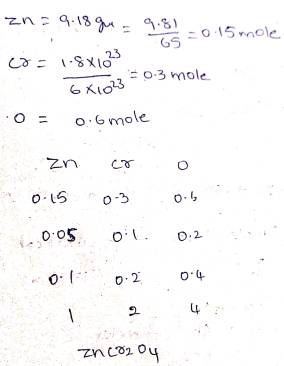 Zn = 9.18 gm = 9.81/65 = 0.15 mole
Cr = 1.8×10^23 / 6×10^23 = 0.3 mole
O = 0.6 mole
Zn Cr O
0.15 0.3 0.6
0.05 0.1 0.2
0.1 0.2 0.4
1 2 4
ZnCr2O4